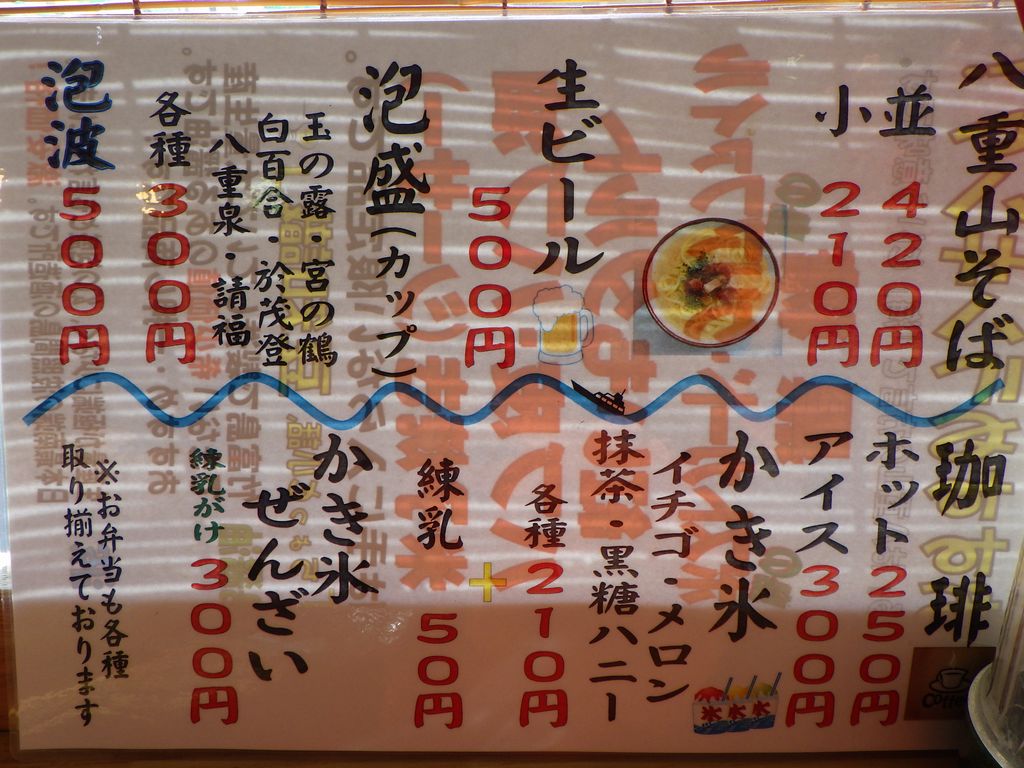 八重山そば
並 420円
小 210円
生ビール
500円
泡盛(カップ)
玉の露・宮の鶴
白百合・於茂登
八重泉・請福
各種 300円
泡波 500円
珈琲
ホット 250円
アイス 300円
Coffee
かき氷
イチゴ・メロン
抹茶・黒糖ハニー
各種 210円
+
練乳 50円
氷 氷 氷
かき氷
ぜんざい
練乳がけ 300円
※お弁当も各種
取り揃えております